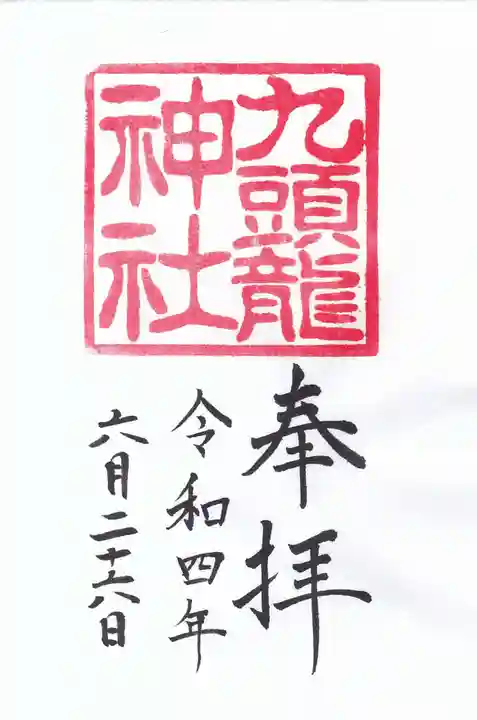 九頭龍
神社
奉拝
令和四年
六月二十六日